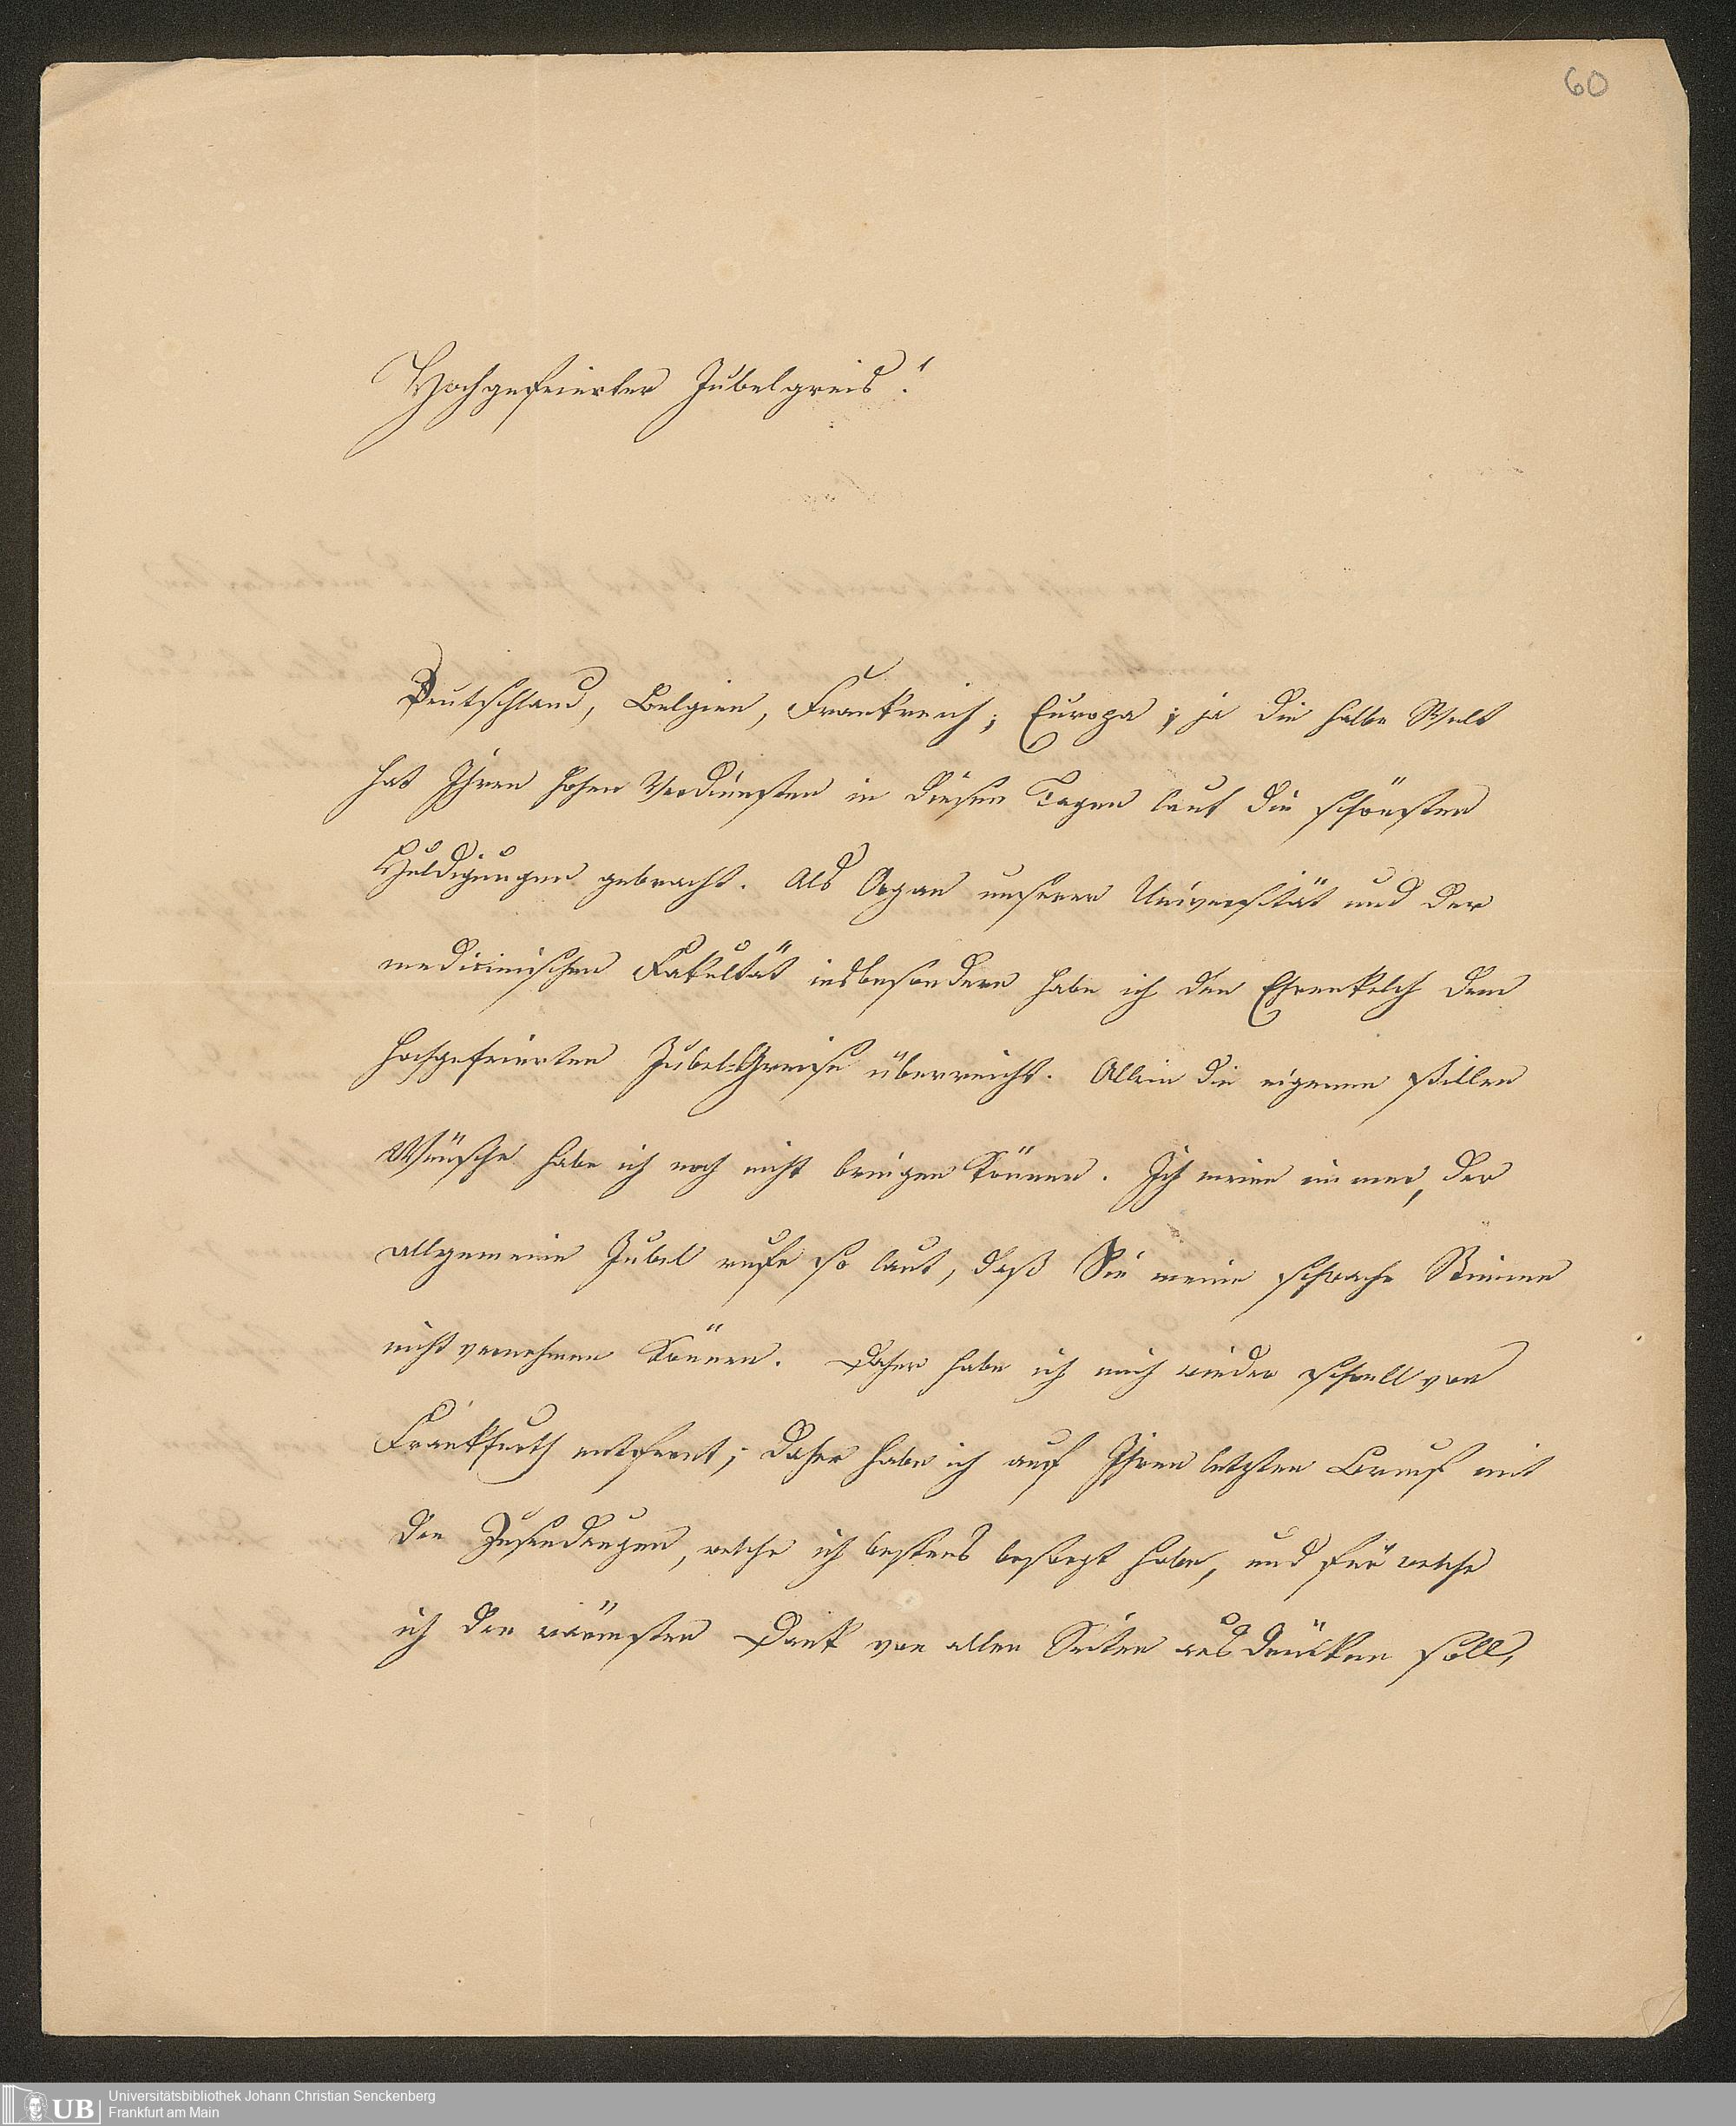 60
Hochgefeierter Jubelgreis!
Deutschland, Belgien, Frankreich; Europa; ja die halbe Welt
hat Ihren hohen Verdiensten in diesen Tagen laut die schönsten
Huldigungen gebracht. Als Organ unserer Universität und der
medicinischen Fakultät insbesondere habe ich den Ehrenkelch dem
hochgefeierten Jubel-Greise überreicht. Allein die eigenen stillen
Wünsche habe ich noch nicht bringen können. Ich meine immer, der
allgemeine Jubel rufe so laut, daß Sie meine schwache Stimme
nicht vernehmen können. Daher habe ich mich wieder schnell von
Frankfurth entfernt; daher habe ich auf Ihren letzten Brief mit
den Zusendungen, welche ich bestens besorgt habe, und für welche
ich den wärmsten Dank von allen Seiten ausdrücken soll,
UB
Universitätsbibliothek Johann Christian Senckenberg
Frankfurt am Main